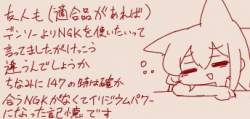 友人も(適合品があれば)
デンソーよりNGKを使いたいって
言ってましたがけっこう
違うんでしょうか
ちなみに147の時は確か
合うNGKがなくてイリジウムパワー
になった記憶です